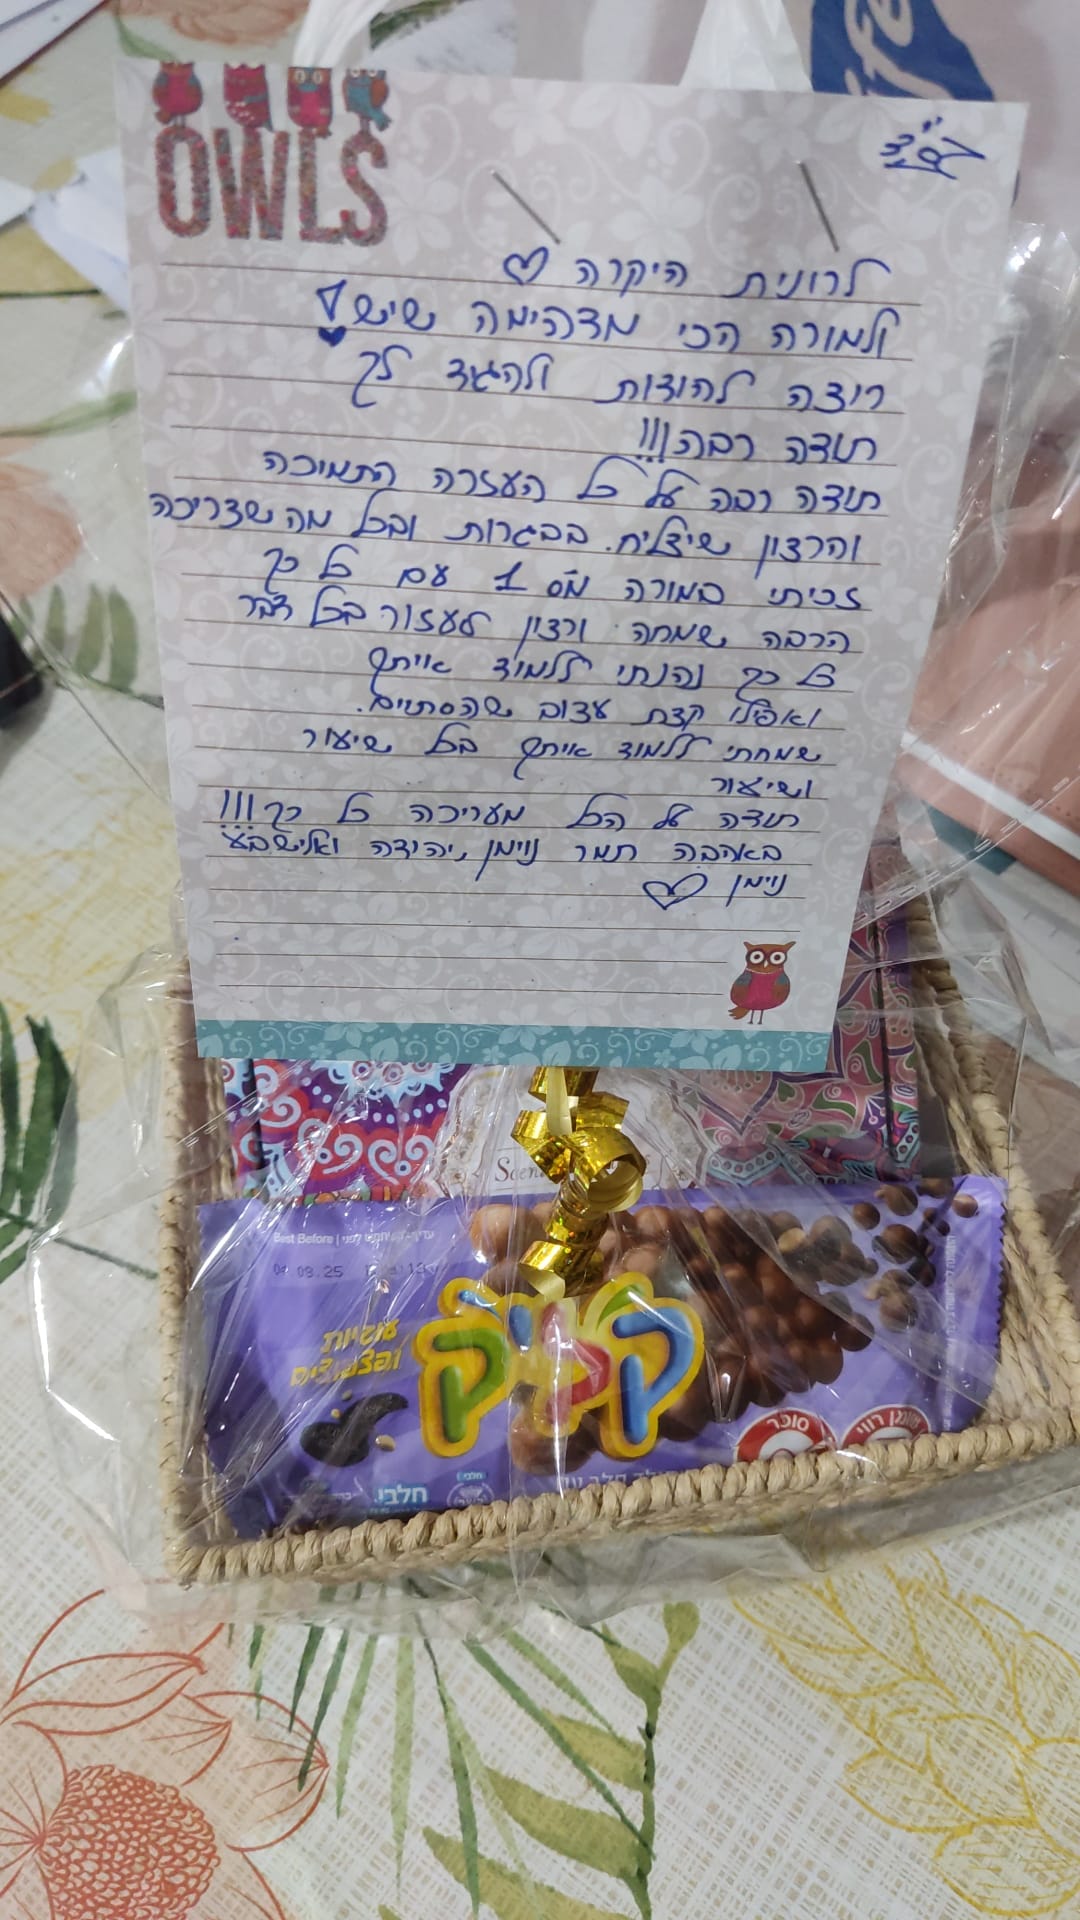 fe
OWLS
בס"ד
לרונית היקרה
ולמורה הכי מדהימה שיש!
רוצה להודות ולהגיד לך
תודה רבה!!!
תודה רבה על כל העזרה התמיכה
והרצון שיצליח. בבגרות ובכל מה שצריכה
זכיתי במורה מס 1 עם כל כך
הרבה שמחה ורצון לעזור בכל דבר
כל כך נהנתי ללמוד איתך
ואפילו קצת עצוב שהסתיים.
שמחתי ללמוד איתך בכל שיעור
ושיעור
תודה על הכל מעריכה כל כך!!!
באהבה תמר נוימן, יהודה ואלישבע
נוימן
Best Before | עדיף להשתמש לפני
04 08.25
עוגיות
קליק
סוכר
שומן רווי
חלבי
חלבי